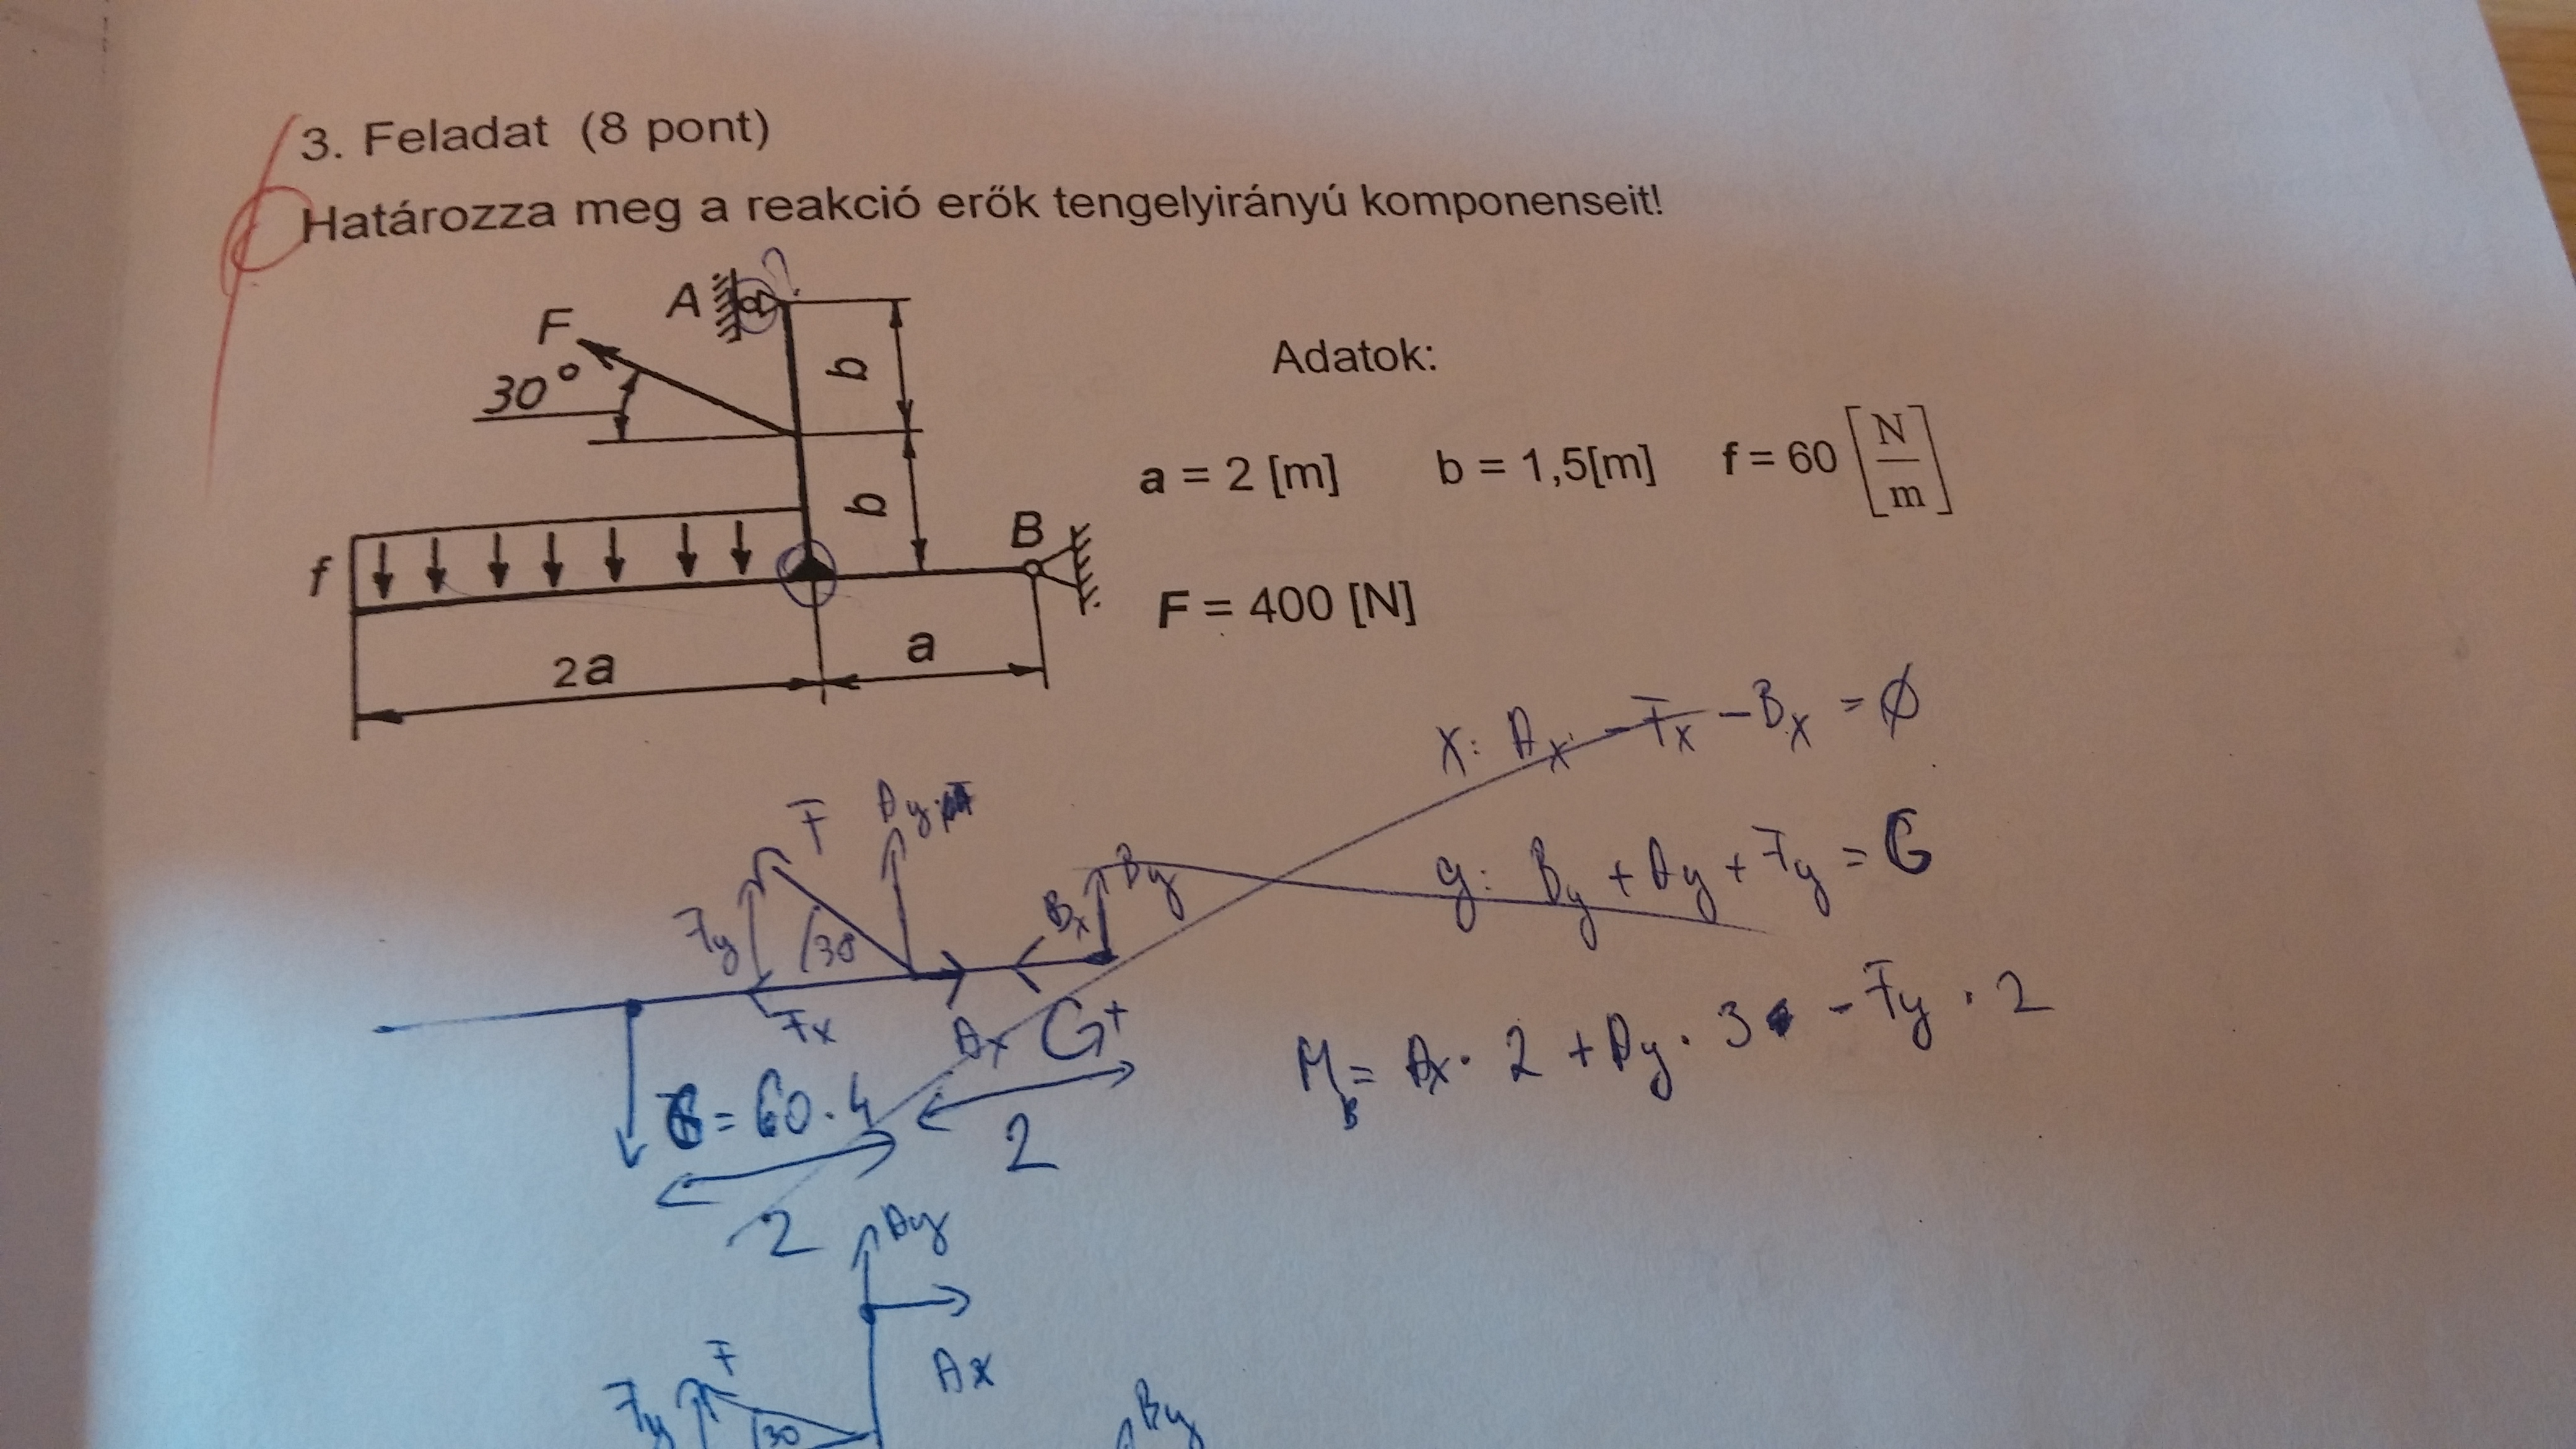 3. Feladat (8 pont)
Határozza meg a reakció erők tengelyirányú komponenseit!
A
F
30°
b
b
f
B
2a
a
Adatok:
a = 2 [m] b = 1,5[m] f = 60 [N/m]
F = 400 [N]
x: Ax - Fx - Bx = Ø
y: By + Ay + Fy = G
M_B = Ax · 2 + Ay · 3 - Fy · 2
F
Ay
Fy
30
Bx
By
Fx
Ax
G = 60 · 4
2
2
Ay
Ax
F
Fy
30
By